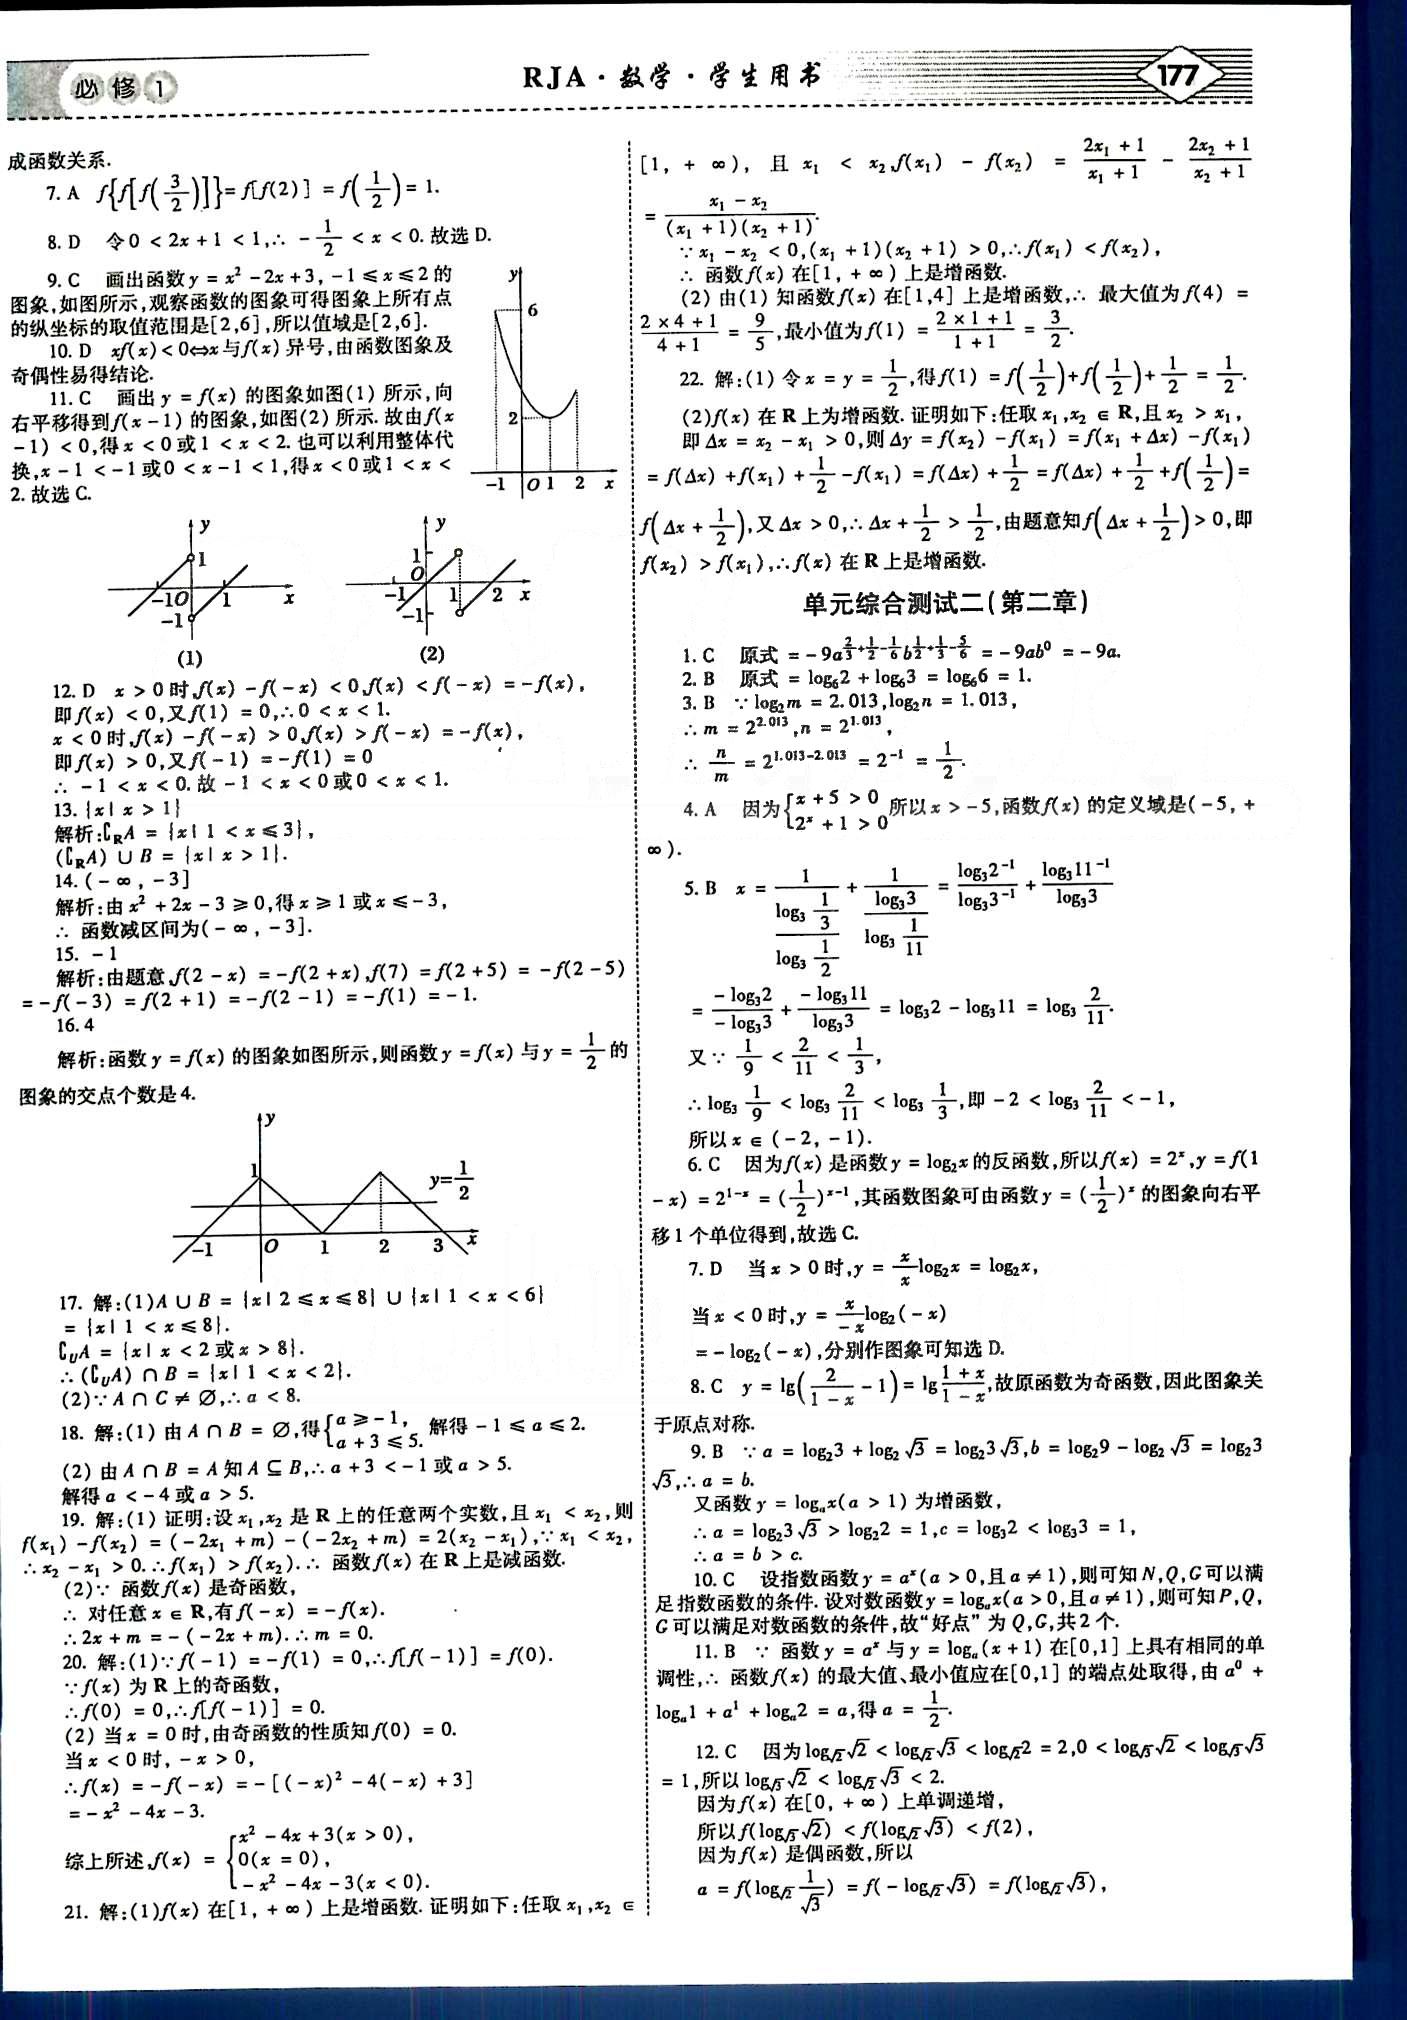 必修1
RJA·数学·学生用书
177
成函数关系.
7. A f{f[f(3/2)]}=f[f(2)]=f(1/2)=1.
8. D 令0<2x+1<1,∴ -1/2<x<0.故选D.
9. C 画出函数y=x²-2x+3,-1≤x≤2的
图象,如图所示,观察函数的图象可得图象上所有点
的纵坐标的取值范围是[2,6],所以值域是[2,6].
10. D xf(x)<0⇔x与f(x)异号,由函数图象及
奇偶性易得结论.
11. C 画出y=f(x)的图象如图(1)所示,向
右平移得到f(x-1)的图象,如图(2)所示.故由f(x
-1)<0,得x<0或1<x<2.也可以利用整体代
换,x-1<-1或0<x-1<1,得x<0或1<x<
2.故选C.
y
6
2
-1 O 1 2 x
y
1
-1 O 1 x
-1
(1)
y
1
O
-1 1 2 x
-1
(2)
12. D x>0时,f(x)-f(-x)<0,f(x)<f(-x)=-f(x),
即f(x)<0,又f(1)=0,∴0<x<1.
x<0时,f(x)-f(-x)>0,f(x)>f(-x)=-f(x),
即f(x)>0,又f(-1)=-f(1)=0
∴ -1<x<0.故-1<x<0或0<x<1.
13. {x|x>1}
解析:∁RA={x|1<x≤3},
(∁RA)∪B={x|x>1}.
14. (-∞,-3]
解析:由x²+2x-3≥0,得x≥1或x≤-3,
∴ 函数减区间为(-∞,-3].
15. -1
解析:由题意,f(2-x)=-f(2+x),f(7)=f(2+5)=-f(2-5)
=-f(-3)=f(2+1)=-f(2-1)=-f(1)=-1.
16. 4
解析:函数y=f(x)的图象如图所示,则函数y=f(x)与y=1/2的
图象的交点个数是4.
y
1
y=1/2
-1 O 1 2 3 x
17. 解:(1)A∪B={x|2≤x≤8}∪{x|1<x<6}
={x|1<x≤8}.
∁UA={x|x<2或x>8}.
∴(∁UA)∩B={x|1<x<2}.
(2)∵A∩C≠∅,∴a<8.
18. 解:(1)由A∩B=∅,得{a≥-1, a+3≤5. 解得-1≤a≤2.
(2)由A∩B=A知A⊆B,∴a+3<-1或a>5.
解得a<-4或a>5.
19. 解:(1)证明:设x₁,x₂是R上的任意两个实数,且x₁<x₂,则
f(x₁)-f(x₂)=(-2x₁+m)-(-2x₂+m)=2(x₂-x₁),∵x₁<x₂,
∴x₂-x₁>0.∴f(x₁)>f(x₂).∴ 函数f(x)在R上是减函数.
(2)∵ 函数f(x)是奇函数,
∴ 对任意x∈R,有f(-x)=-f(x).
∴2x+m=-(-2x+m).∴m=0.
20. 解:(1)∵f(-1)=-f(1)=0,∴f[f(-1)]=f(0).
∵f(x)为R上的奇函数,
∴f(0)=0,∴f[f(-1)]=0.
(2)当x=0时,由奇函数的性质知f(0)=0.
当x<0时,-x>0,
∴f(x)=-f(-x)=-[(-x)²-4(-x)+3]
=-x²-4x-3.
综上所述,f(x)={x²-4x+3(x>0), 0(x=0), -x²-4x-3(x<0).
21. 解:(1)f(x)在[1,+∞)上是增函数.证明如下:任取x₁,x₂∈
[1,+∞),且x₁<x₂,f(x₁)-f(x₂)=(2x₁+1)/(x₁+1)-(2x₂+1)/(x₂+1)
=(x₁-x₂)/((x₁+1)(x₂+1)).
∵x₁-x₂<0,(x₁+1)(x₂+1)>0,∴f(x₁)<f(x₂),
∴ 函数f(x)在[1,+∞)上是增函数.
(2)由(1)知函数f(x)在[1,4]上是增函数,∴ 最大值为f(4)=
(2×4+1)/(4+1)=9/5,最小值为f(1)=(2×1+1)/(1+1)=3/2.
22. 解:(1)令x=y=1/2,得f(1)=f(1/2)+f(1/2)+1/2=1/2.
(2)f(x)在R上为增函数.证明如下:任取x₁,x₂∈R,且x₂>x₁,
即Δx=x₂-x₁>0,则Δy=f(x₂)-f(x₁)=f(x₁+Δx)-f(x₁)
=f(Δx)+f(x₁)+1/2-f(x₁)=f(Δx)+1/2=f(Δx)+1/2+f(1/2)=
f(Δx+1/2),又Δx>0,∴Δx+1/2>1/2,由题意知f(Δx+1/2)>0,即
f(x₂)>f(x₁),∴f(x)在R上是增函数.
单元综合测试二(第二章)
1. C 原式=-9a^(2/3+1/2-1/6)b^(1/2+1/3-5/6)=-9ab⁰=-9a.
2. B 原式=log₆2+log₆3=log₆6=1.
3. B ∵log₂m=2.013,log₂n=1.013,
∴m=2^2.013,n=2^1.013,
∴ n/m=2^(1.013-2.013)=2⁻¹=1/2.
4. A 因为{x+5>0 2ˣ+1>0 所以x>-5,函数f(x)的定义域是(-5,+
∞).
5. B x=1/((log₃ 1/3)/(log₃ 1/2))+1/((log₃3)/(log₃ 1/11))=(log₃2⁻¹)/(log₃3⁻¹)+(log₃11⁻¹)/(log₃3)
=(-log₃2)/(-log₃3)+(-log₃11)/(log₃3)=log₃2-log₃11=log₃ 2/11.
又∵ 1/9<2/11<1/3,
∴log₃ 1/9<log₃ 2/11<log₃ 1/3,即-2<log₃ 2/11<-1,
所以x∈(-2,-1).
6. C 因为f(x)是函数y=log₂x的反函数,所以f(x)=2ˣ,y=f(1
-x)=2^(1-x)=(1/2)^(x-1),其函数图象可由函数y=(1/2)ˣ的图象向右平
移1个单位得到,故选C.
7. D 当x>0时,y=x/x log₂x=log₂x,
当x<0时,y=x/(-x) log₂(-x)
=-log₂(-x),分别作图象可知选D.
8. C y=lg(2/(1-x)-1)=lg (1+x)/(1-x),故原函数为奇函数,因此图象关
于原点对称.
9. B ∵a=log₂3+log₂√3=log₂3√3,b=log₂9-log₂√3=log₂3
√3,∴a=b.
又函数y=logₐx(a>1)为增函数,
∴a=log₂3√3>log₂2=1,c=log₃2<log₃3=1,
∴a=b>c.
10. C 设指数函数y=aˣ(a>0,且a≠1),则可知N,Q,G可以满
足指数函数的条件.设对数函数y=logₐx(a>0,且a≠1),则可知P,Q,
G可以满足对数函数的条件,故“好点”为Q,G,共2个.
11. B ∵ 函数y=aˣ与y=logₐ(x+1)在[0,1]上具有相同的单
调性,∴ 函数f(x)的最大值、最小值应在[0,1]的端点处取得,由a⁰+
logₐ1+a¹+logₐ2=a,得a=1/2.
12. C 因为log_√2 √2<log_√2 √3<log_√2 2=2,0<log_√3 √2<log_√3 √3
=1,所以log_√3 √2<log_√2 √3<2.
因为f(x)在[0,+∞)上单调递增,
所以f(log_√3 √2)<f(log_√2 √3)<f(2),
因为f(x)是偶函数,所以
a=f(log_√2 1/√3)=f(-log_√2 √3)=f(log_√2 √3),